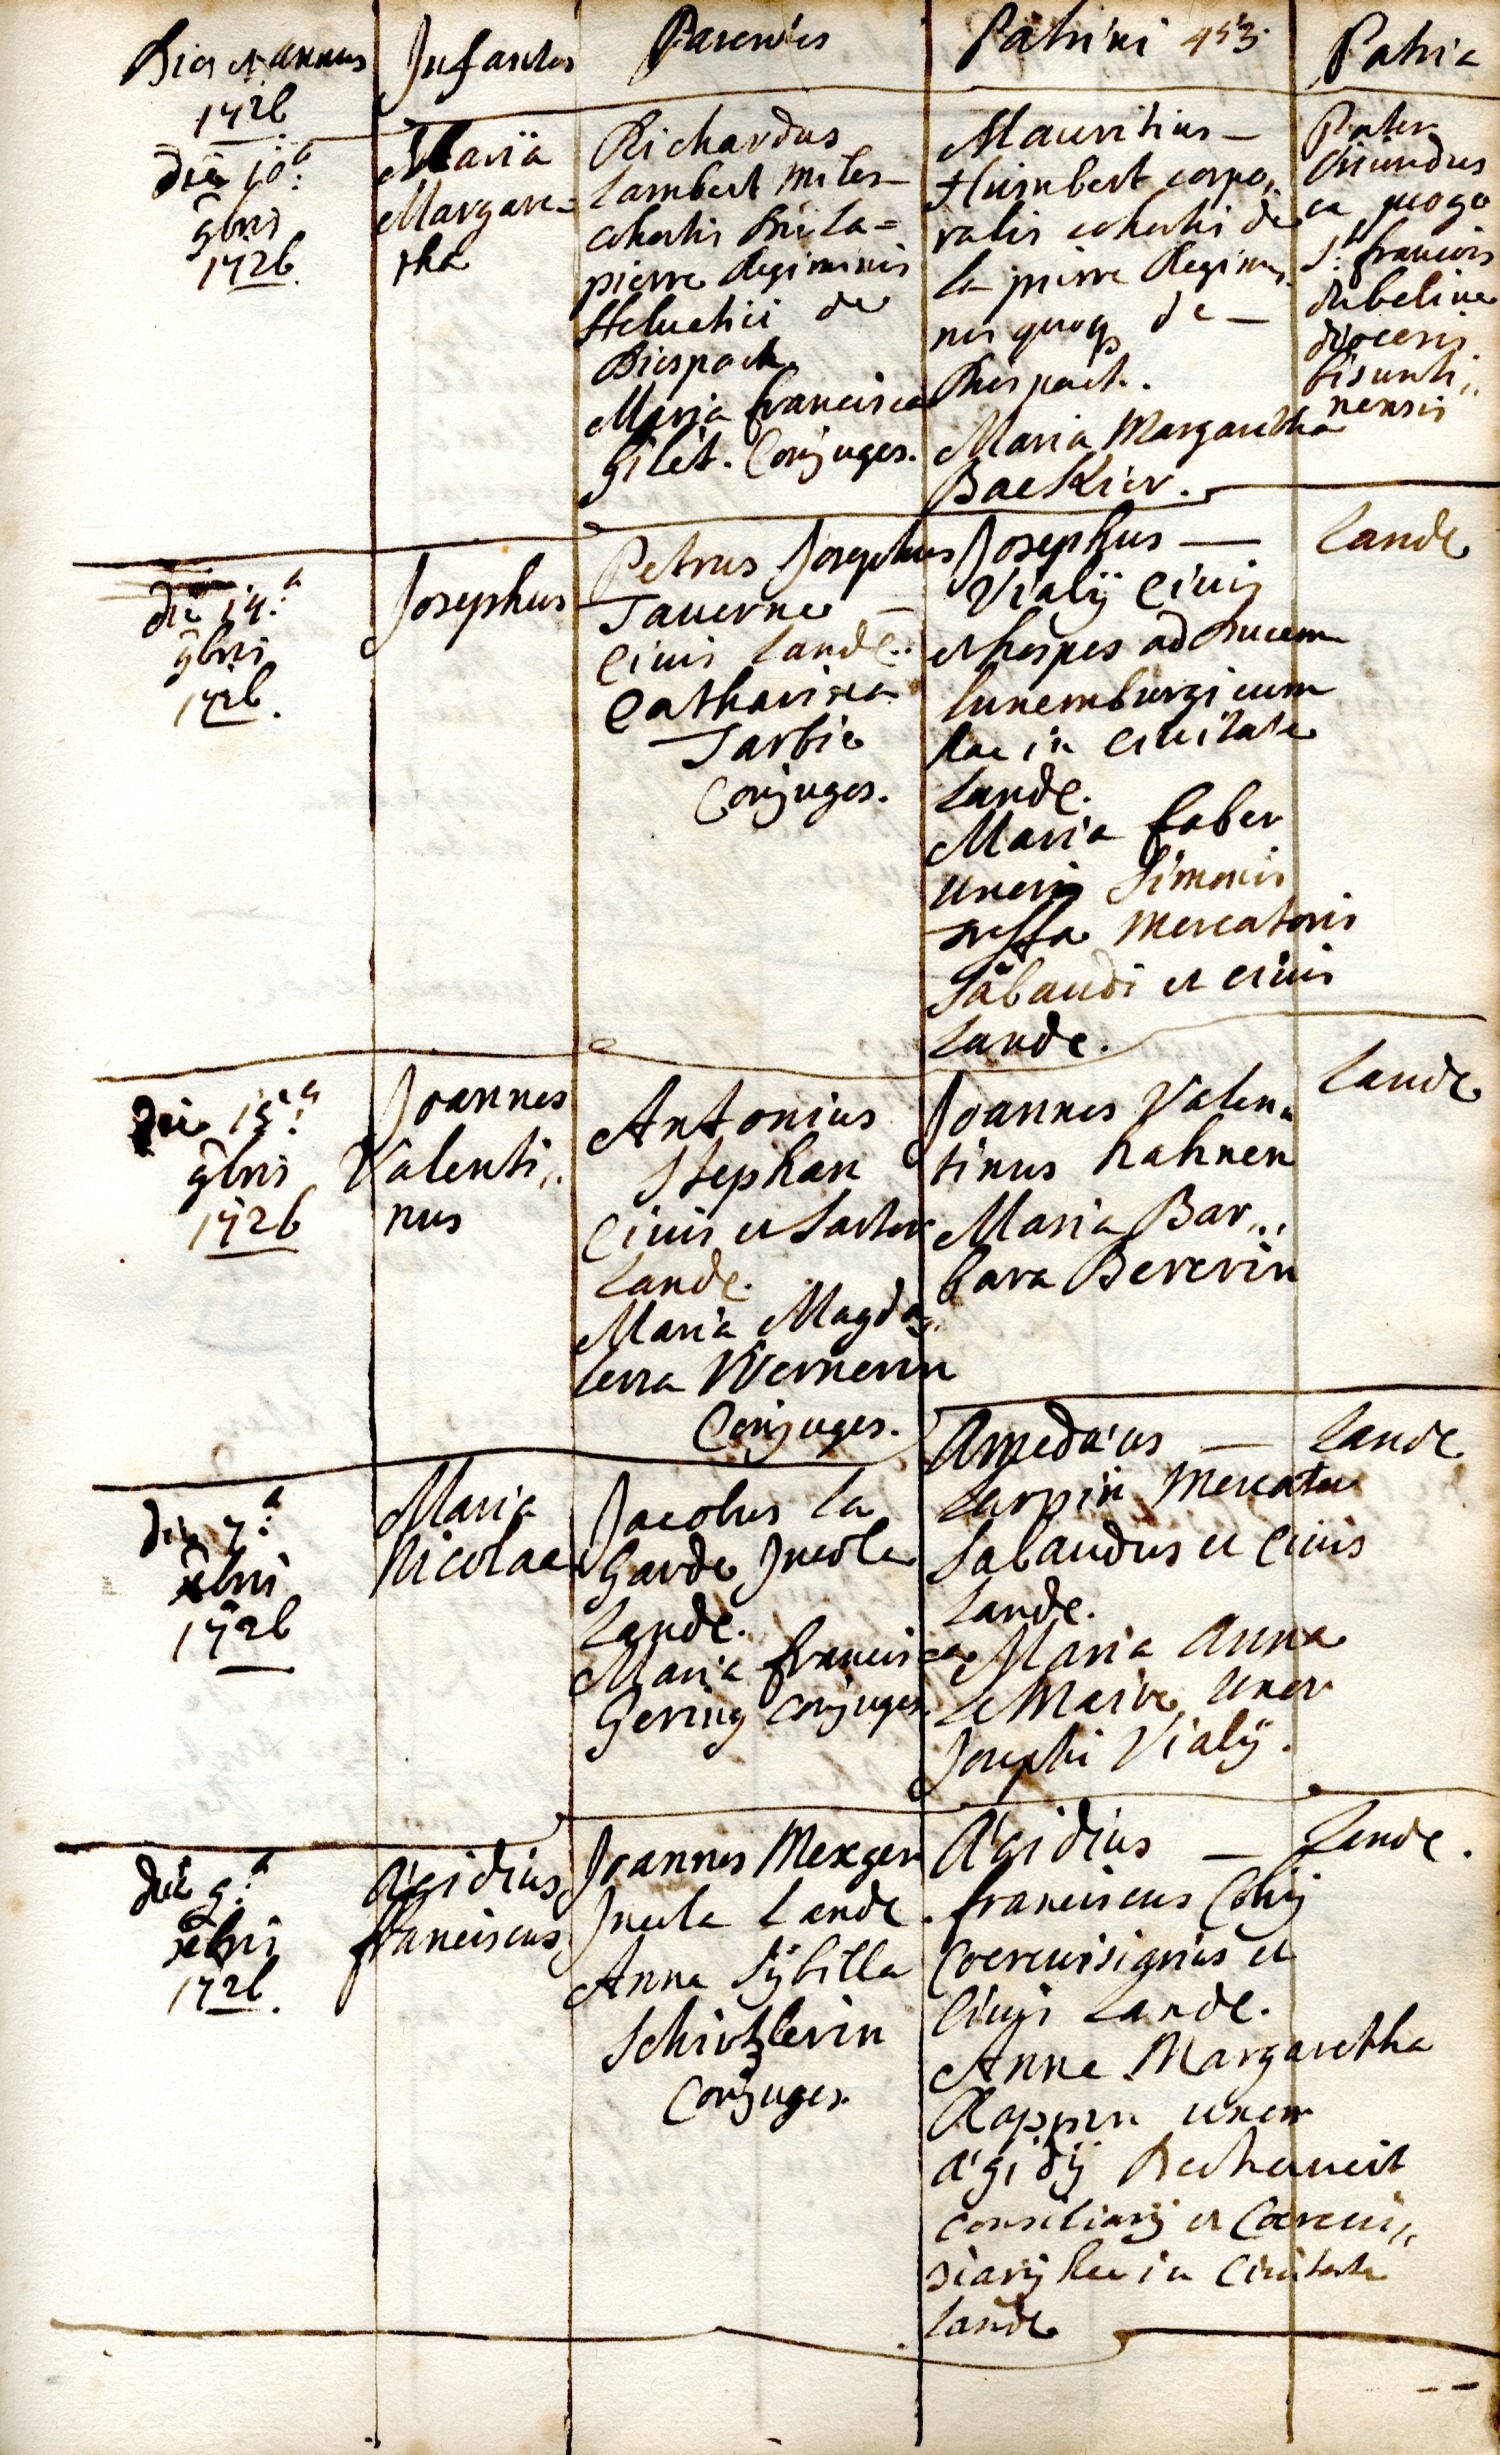 Dies et annus
1726
Infantes
Parentes
Patrini 453.
Patria
die 10.a
9bris
1726.
Maria
Margare=
tha
Richardus
Lambert miles
cohortis
pierre Regiminis
Helvetici de
Diespach
Maria francisca
Gilet. Conjuges.
Mauritius —
Humbert corpo,,
ralis cohortis de
la pierre Regimi,,
nis quoq de —
Diespach.
Maria Margaretha
Backier.
Pater
oriundus
ex
St. francois
dioecesis
bisunti,,
nensis
die 14.a
9bris
1726.
Josephus
Petrus Josephus
Taverne —
Civis Landae.
Catharina
Tarbie
Conjuges.
Josephus —
Vialÿ Civis
et hospes ad ducem
luxemburgicum
hac in civitate
Landae.
Maria faber
uxor Simonis
mercatoris
Sabaudi et civis
Landae.
Landae
die 15.a
9bris
1726
Joannes
Valenti,,
nus
Antonius
Stephan
Civis et Sartor
Landae.
Maria Magda,,
lena Wernerin
Conjuges.
Joannes Valen,,
tinus hahnen
Maria Bar,,
bara Bererin
Landae
die 7.a
xbris
1726
Maria
Nicolaea
Jacobus la
Garde Incola
Landae.
Maria francisca
Gering conjuges.
Amedaeus —
Larpin Mercator
Sabaudus et Civis
Landae.
Maria Anna
le Maire uxor
Josephi Vialÿ.
Landae
die 9.a
xbris
1726.
Aegidius
franciscus
Joannes Mexger
Incola Landae.
Anna Sÿbilla
Schirtzlerin
Conjuges.
Aegidius —
franciscus Colig
Coerevisiarius et
Civis Landae.
Anna Margaretha
uxor
Aegidÿ
consiliarÿ et Coerevi,,
siarÿ hac in Civitate
Landae
Landae.